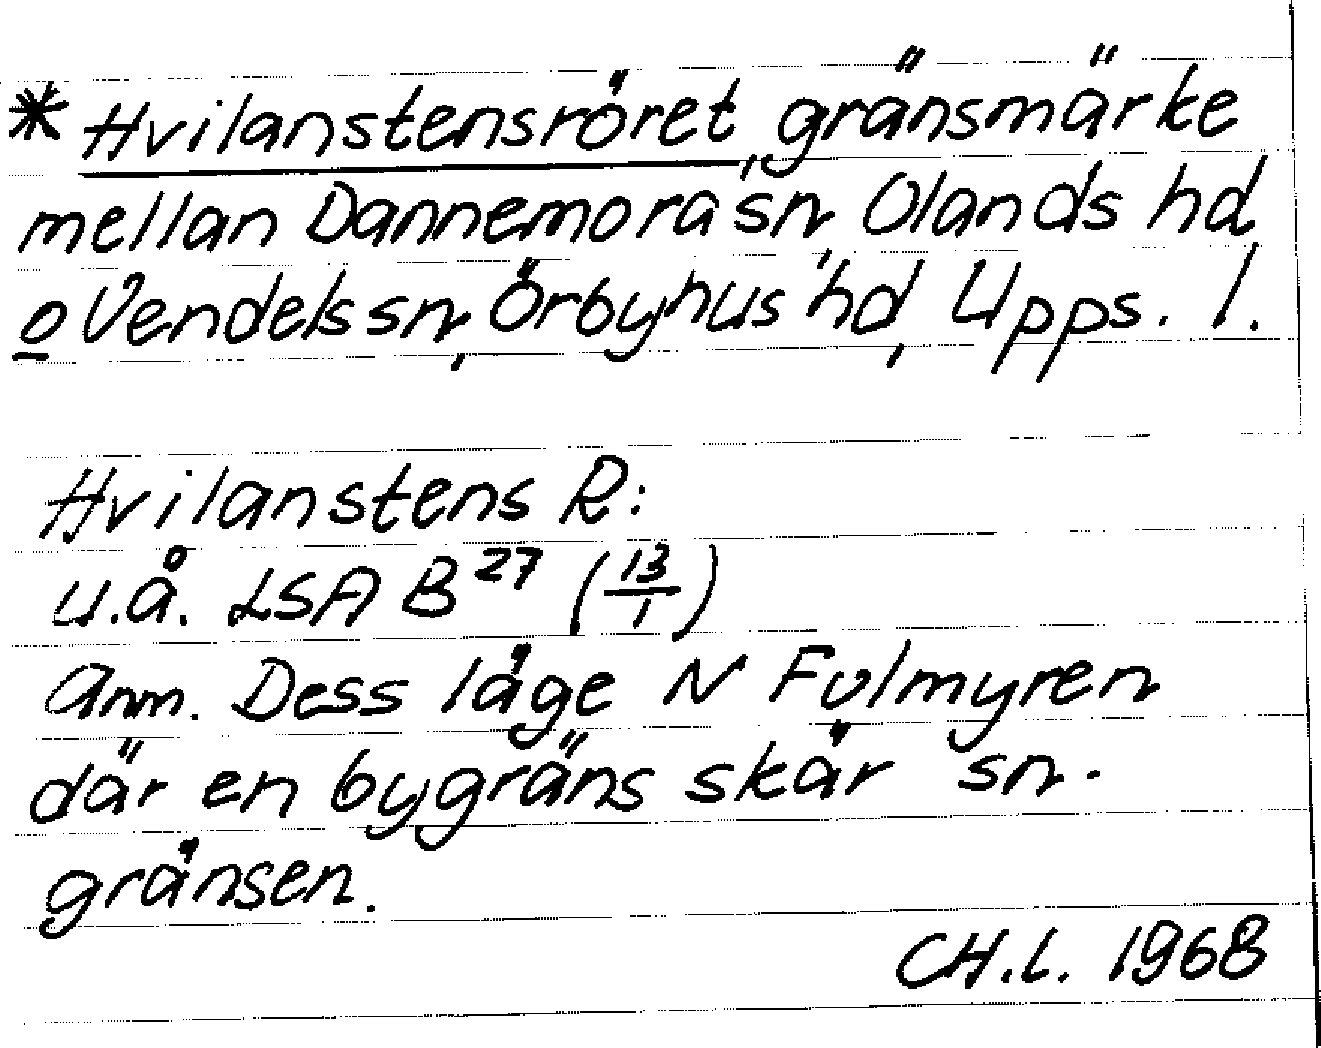 * Hvilanstensröret, gränsmärke
mellan Dannemora sn Olands hd
o Vendels sn, Örbyhus hd, Upps. l.
Hvilanstens R:
u.å. LSA B 27 (13/1)
Anm. Dess läge N Fulmyren
där en bygräns skär sn-
gränsen.
CH.L. 1968